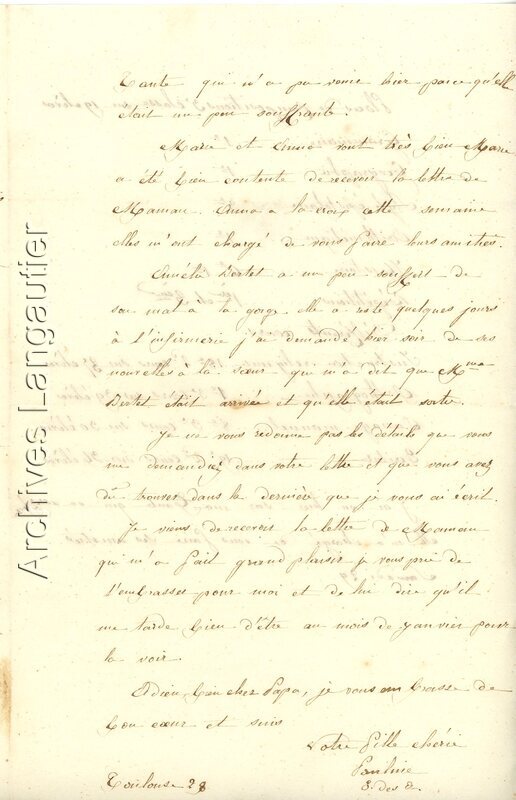 Tante qui n'a pu venir hier parce qu'elle
était un peu souffrante.
Marie et Anna vont très bien Marie
a été bien contente de recevoir la lettre de
Maman. Anna a la croix cette semaine
elles m'ont chargé de vous faire leurs amitiés.
Amélie Bertet a un peu souffert de
son mal à la gorge elle a resté quelques jours
à l'infirmerie j'ai demandé hier soir de ses
nouvelles à la sœur qui m'a dit que Mme
Bertet était arrivée et qu'elle était sortie.
Je ne vous redonne pas les détails que vous
me demandez dans votre lettre et que vous avez
dû trouver dans la dernière que je vous ai écrit.
Je viens de recevoir la lettre de Maman
qui m'a fait grand plaisir je vous prie de
l'embrasser pour moi et de lui dire qu'il
me tarde bien d'être au mois de Janvier pour
la voir.
Adieu, bien cher Papa, je vous embrasse de
bon cœur et suis
Votre fille chérie
Pauline
Toulouse 28
Archives Langautier